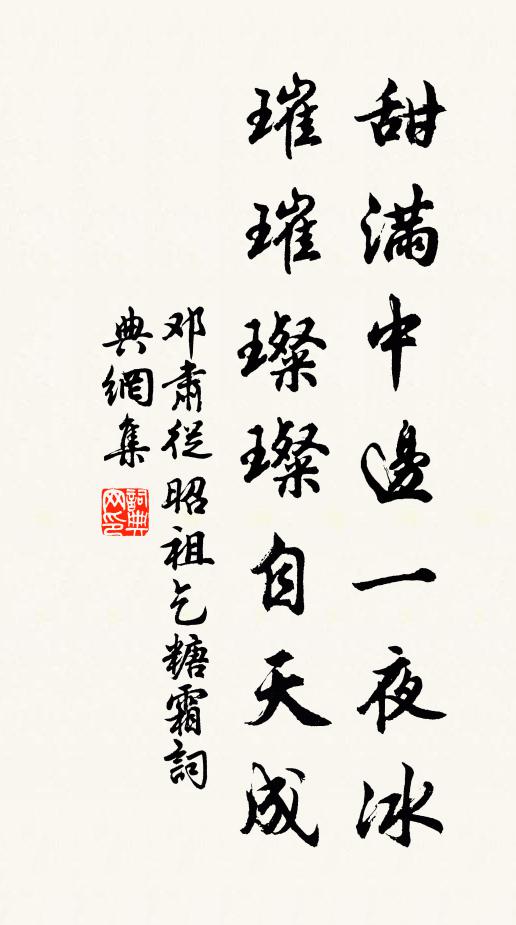 甜滿中邊一夜冰
璀璀璨璨自天成
邓肅從昭祖乞糖霜詞
典網集
詞典网印